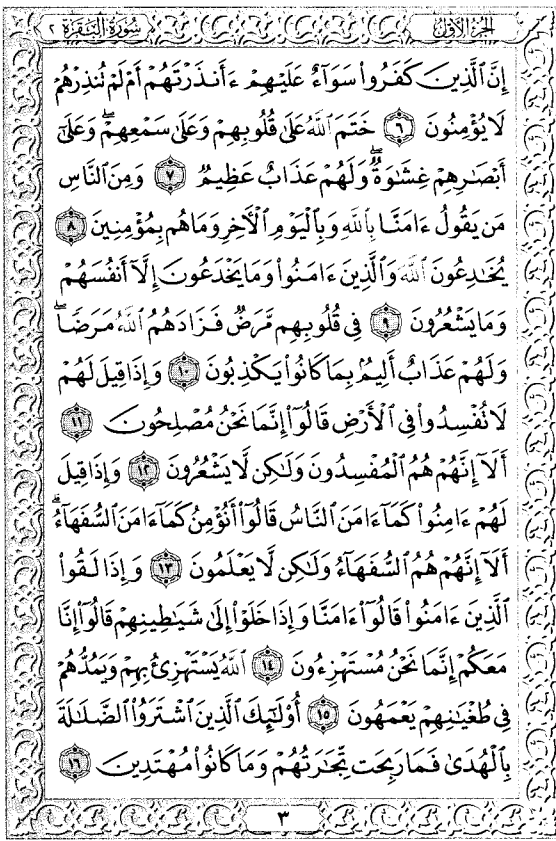 سُورَةُ البَقَرَةِ ٢
الجُزْءُ الأَوَّلُ
إِنَّ ٱلَّذِينَ كَفَرُوا۟ سَوَآءٌ عَلَيْهِمْ ءَأَنذَرْتَهُمْ أَمْ لَمْ تُنذِرْهُمْ
لَا يُؤْمِنُونَ ٦ خَتَمَ ٱللَّهُ عَلَىٰ قُلُوبِهِمْ وَعَلَىٰ سَمْعِهِمْ ۖ وَعَلَىٰٓ
أَبْصَـٰرِهِمْ غِشَـٰوَةٌ ۖ وَلَهُمْ عَذَابٌ عَظِيمٌ ٧ وَمِنَ ٱلنَّاسِ
مَن يَقُولُ ءَامَنَّا بِٱللَّهِ وَبِٱلْيَوْمِ ٱلْـَٔاخِرِ وَمَا هُم بِمُؤْمِنِينَ ٨
يُخَـٰدِعُونَ ٱللَّهَ وَٱلَّذِينَ ءَامَنُوا۟ وَمَا يَخْدَعُونَ إِلَّآ أَنفُسَهُمْ
وَمَا يَشْعُرُونَ ٩ فِى قُلُوبِهِم مَّرَضٌ فَزَادَهُمُ ٱللَّهُ مَرَضًا ۖ
وَلَهُمْ عَذَابٌ أَلِيمٌۢ بِمَا كَانُوا۟ يَكْذِبُونَ ١٠ وَإِذَا قِيلَ لَهُمْ
لَا تُفْسِدُوا۟ فِى ٱلْأَرْضِ قَالُوٓا۟ إِنَّمَا نَحْنُ مُصْلِحُونَ ١١
أَلَآ إِنَّهُمْ هُمُ ٱلْمُفْسِدُونَ وَلَـٰكِن لَّا يَشْعُرُونَ ١٢ وَإِذَا قِيلَ
لَهُمْ ءَامِنُوا۟ كَمَآ ءَامَنَ ٱلنَّاسُ قَالُوٓا۟ أَنُؤْمِنُ كَمَآ ءَامَنَ ٱلسُّفَهَآءُ ۗ
أَلَآ إِنَّهُمْ هُمُ ٱلسُّفَهَآءُ وَلَـٰكِن لَّا يَعْلَمُونَ ١٣ وَإِذَا لَقُوا۟
ٱلَّذِينَ ءَامَنُوا۟ قَالُوٓا۟ ءَامَنَّا وَإِذَا خَلَوْا۟ إِلَىٰ شَيَـٰطِينِهِمْ قَالُوٓا۟ إِنَّا
مَعَكُمْ إِنَّمَا نَحْنُ مُسْتَهْزِءُونَ ١٤ ٱللَّهُ يَسْتَهْزِئُ بِهِمْ وَيَمُدُّهُمْ
فِى طُغْيَـٰنِهِمْ يَعْمَهُونَ ١٥ أُو۟لَـٰٓئِكَ ٱلَّذِينَ ٱشْتَرَوُا۟ ٱلضَّلَـٰلَةَ
بِٱلْهُدَىٰ فَمَا رَبِحَت تِّجَـٰرَتُهُمْ وَمَا كَانُوا۟ مُهْتَدِينَ ١٦
٣